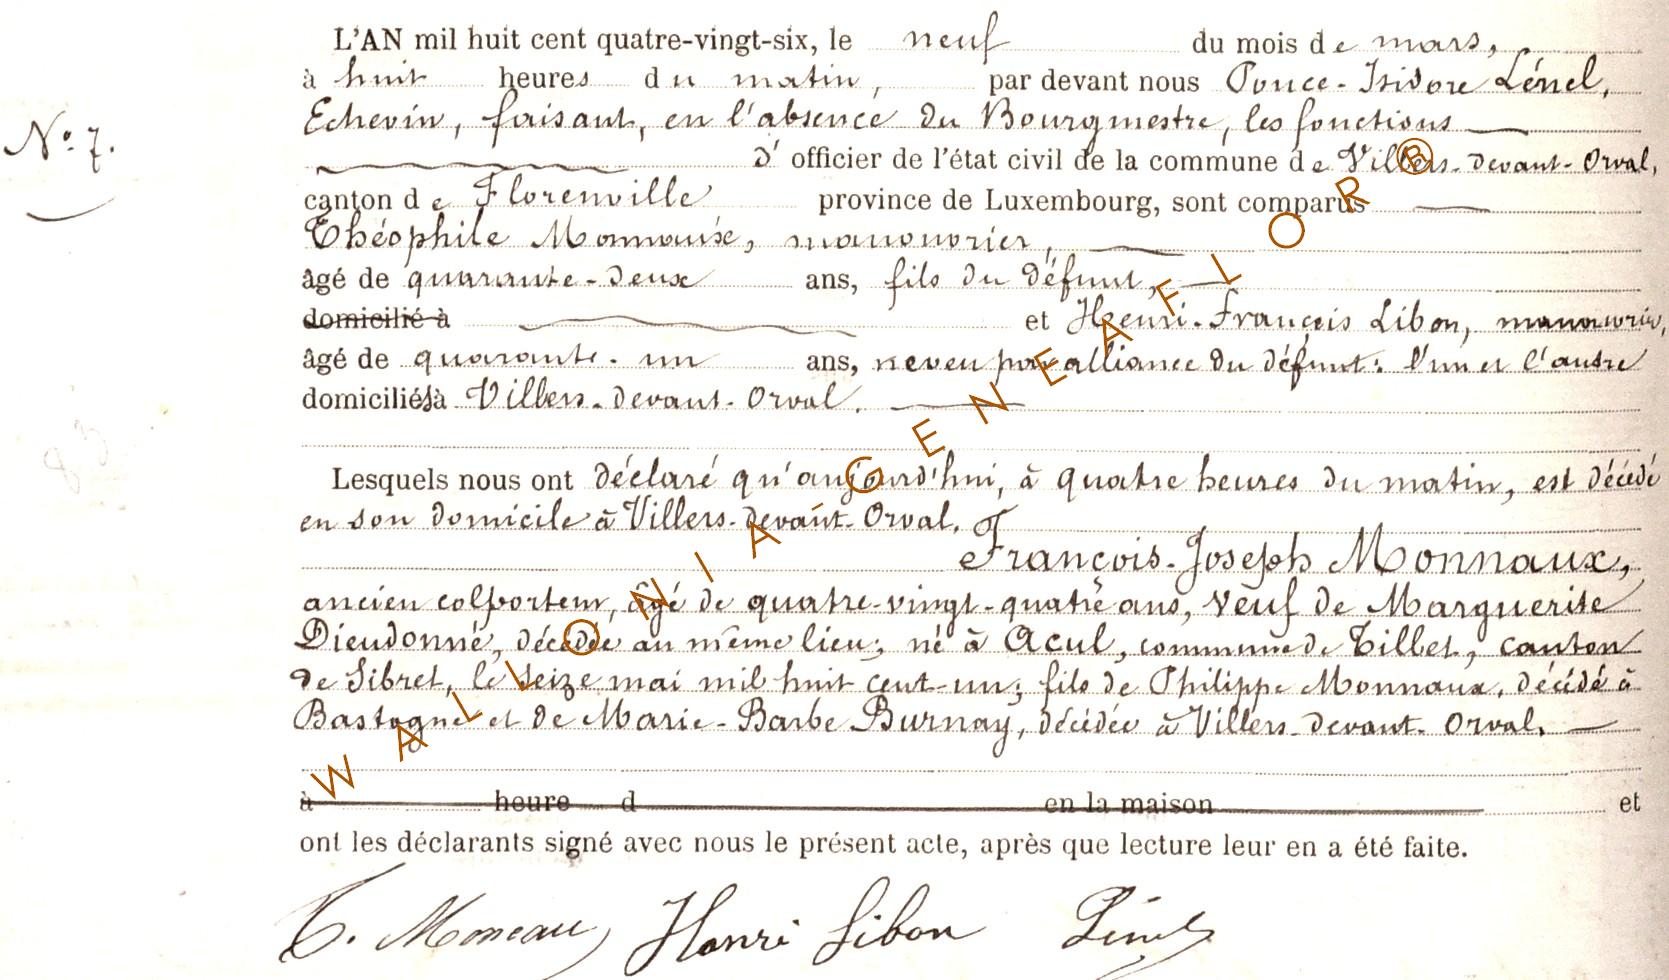 L'AN mil huit cent quatre-vingt-six, le neuf du mois de mars,
à huit heures du matin, par devant nous Ponce-Isidore Lénel,
Echevin, faisant, en l'absence du Bourgmestre, les fonctions
N° 7.
d'officier de l'état civil de la commune de Villers-devant-Orval,
canton de Florenville province de Luxembourg, sont comparus
Théophile Monnaux, manouvrier,
âgé de quarante-deux ans, fils du défunt,
domicilié à et Henri-François Libon, manouvrier,
âgé de quarante-un ans, neveu par alliance du défunt; l'un et l'autre
domiciliés à Villers-devant-Orval.
Lesquels nous ont déclaré qu'aujourd'hui, à quatre heures du matin, est décédé
en son domicile à Villers-devant-Orval,
François-Joseph Monnaux,
ancien colporteur, âgé de quatre-vingt-quatre ans, veuf de Marguerite
Dieudonné, décédée au même lieu; né à Acul, commune de Tillet, canton
de Sibret, le seize mai mil huit cent-un; fils de Philippe Monnaux, décédé à
Bastogne et de Marie-Barbe Burnay, décédée à Villers-devant-Orval.
à heure d en la maison et
ont les déclarants signé avec nous le présent acte, après que lecture leur en a été faite.
T. Moneau Henri Libon Lénel
WALLONIA-GENEAFLOR®